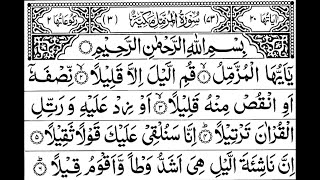 اٰیَاتُهَا ۲۰ (۷۳) سُوْرَةُ الْمُزَّمِّلِ مَكِّيَّةٌ (۳) رُكُوْعَاتُهَا ۲
بِسْمِ اللّٰهِ الرَّحْمٰنِ الرَّحِيْمِ
يٰۤاَيُّهَا الْمُزَّمِّلُ ۱ قُمِ الَّيْلَ اِلَّا قَلِيْلًا ۲ نِّصْفَهٗۤ
اَوِ انْقُصْ مِنْهُ قَلِيْلًا ۳ اَوْ زِدْ عَلَيْهِ وَ رَتِّلِ
الْقُرْاٰنَ تَرْتِيْلًا ۴ اِنَّا سَنُلْقِيْ عَلَيْكَ قَوْلًا ثَقِيْلًا ۵
اِنَّ نَاشِئَةَ الَّيْلِ هِيَ اَشَدُّ وَطْاً وَّ اَقْوَمُ قِيْلًا ۶